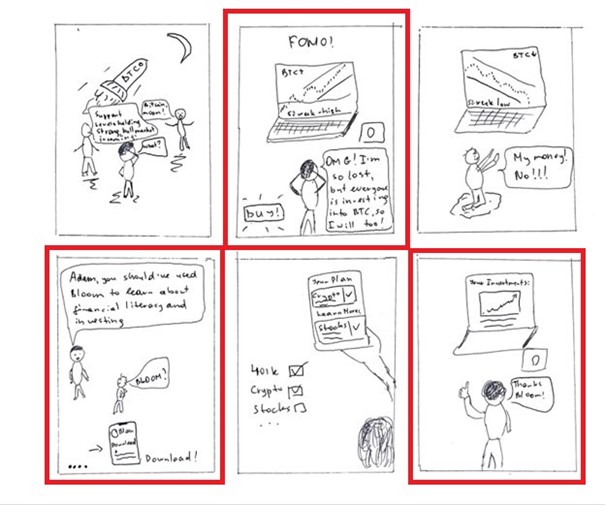 BTC
Support
levels holding
Strong bull market
incoming.
Bitcoin
moon!
What?
FOMO!
BTC↑
52 week-high
OMG! I'm
so lost,
but everyone
is investing
into BTC, so
I will too!
buy!
BTC↓
52 week low
My money!
No!!!
Adam, you should've used
Bloom to learn about
financial literacy and
investing
BLOOM?
Bloom
Download
Download!
Your Plan
Crypto
Learn More:
Stocks
401k
Crypto
Stocks
...
Your Investments:
Thanks
Bloom!